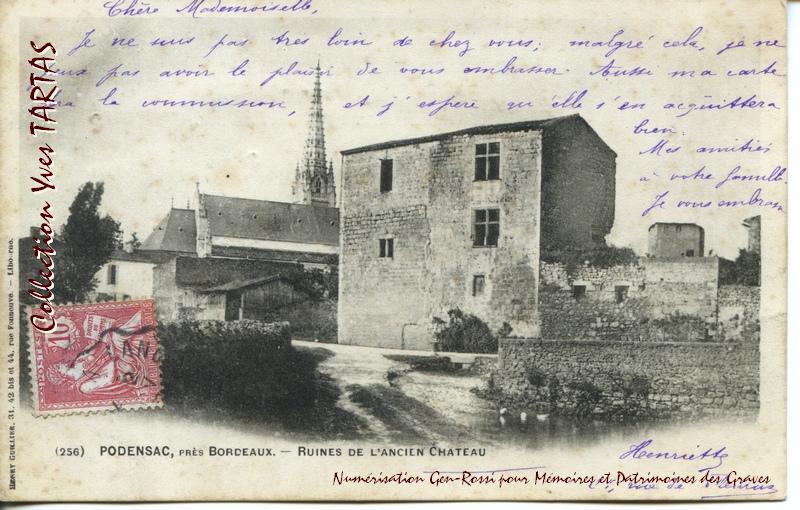 Chère Mademoiselle,
Je ne suis pas très loin de chez vous; malgré cela, je ne
peux pas avoir le plaisir de vous embrasser. Aussi ma carte
fera la commission, et j'espère qu'elle s'en acquittera
bien.
Mes amitiés
à votre famille.
Je vous embrasse
Collection Yves TARTAS
HENRY GUILLIER, 31, 42 bis et 44, rue Fonneuve. — Libourne.
POSTES
10
(256) PODENSAC, PRÈS BORDEAUX. — RUINES DE L'ANCIEN CHATEAU
Henriette
Numérisation Gen-Rossi pour Mémoires et Patrimoines des Graves
rue de Fleurus